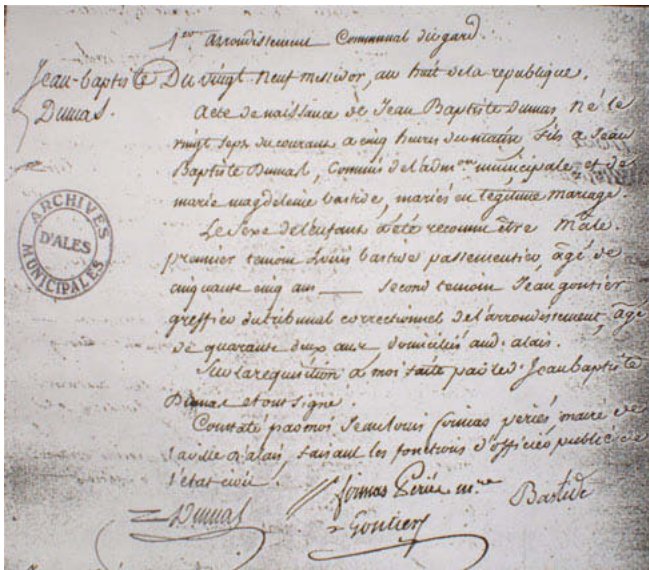 1er arrondissement Communal du gard.
Jean-baptiste
Dumas.
Du vingt Neuf messidor, an huit de la republique.
Acte de naissance de Jean Baptiste Dumas né le
vingt sept du courant a cinq heures du matin, fils a Jean
Baptiste Dumas, Commis de l'adm.on municipale, et de
marie magdeleine bastide, mariés en légitime mariage.
Le Sexe de l'enfant a été reconnu être Male.
premier temoin Louis bastide passementier âgé de
cinquante cinq ans — Second temoin Jean goutier
greffier du tribunal correctionnel de l'arrondissement, âgé
de quarante deux ans, domiciliés aud. alais.
Sur la requisition a moi faite par led. Jean baptiste
Dumas et ont signé.
Constaté par moi Jean louis firmas periés maire de
la ville d'alais, faisant les fonctions d'officier public de
l'état civil.
ARCHIVES
D'ALES
MUNICIPALES
Dumas
firmas Periés m.re
Bastide
Goutier